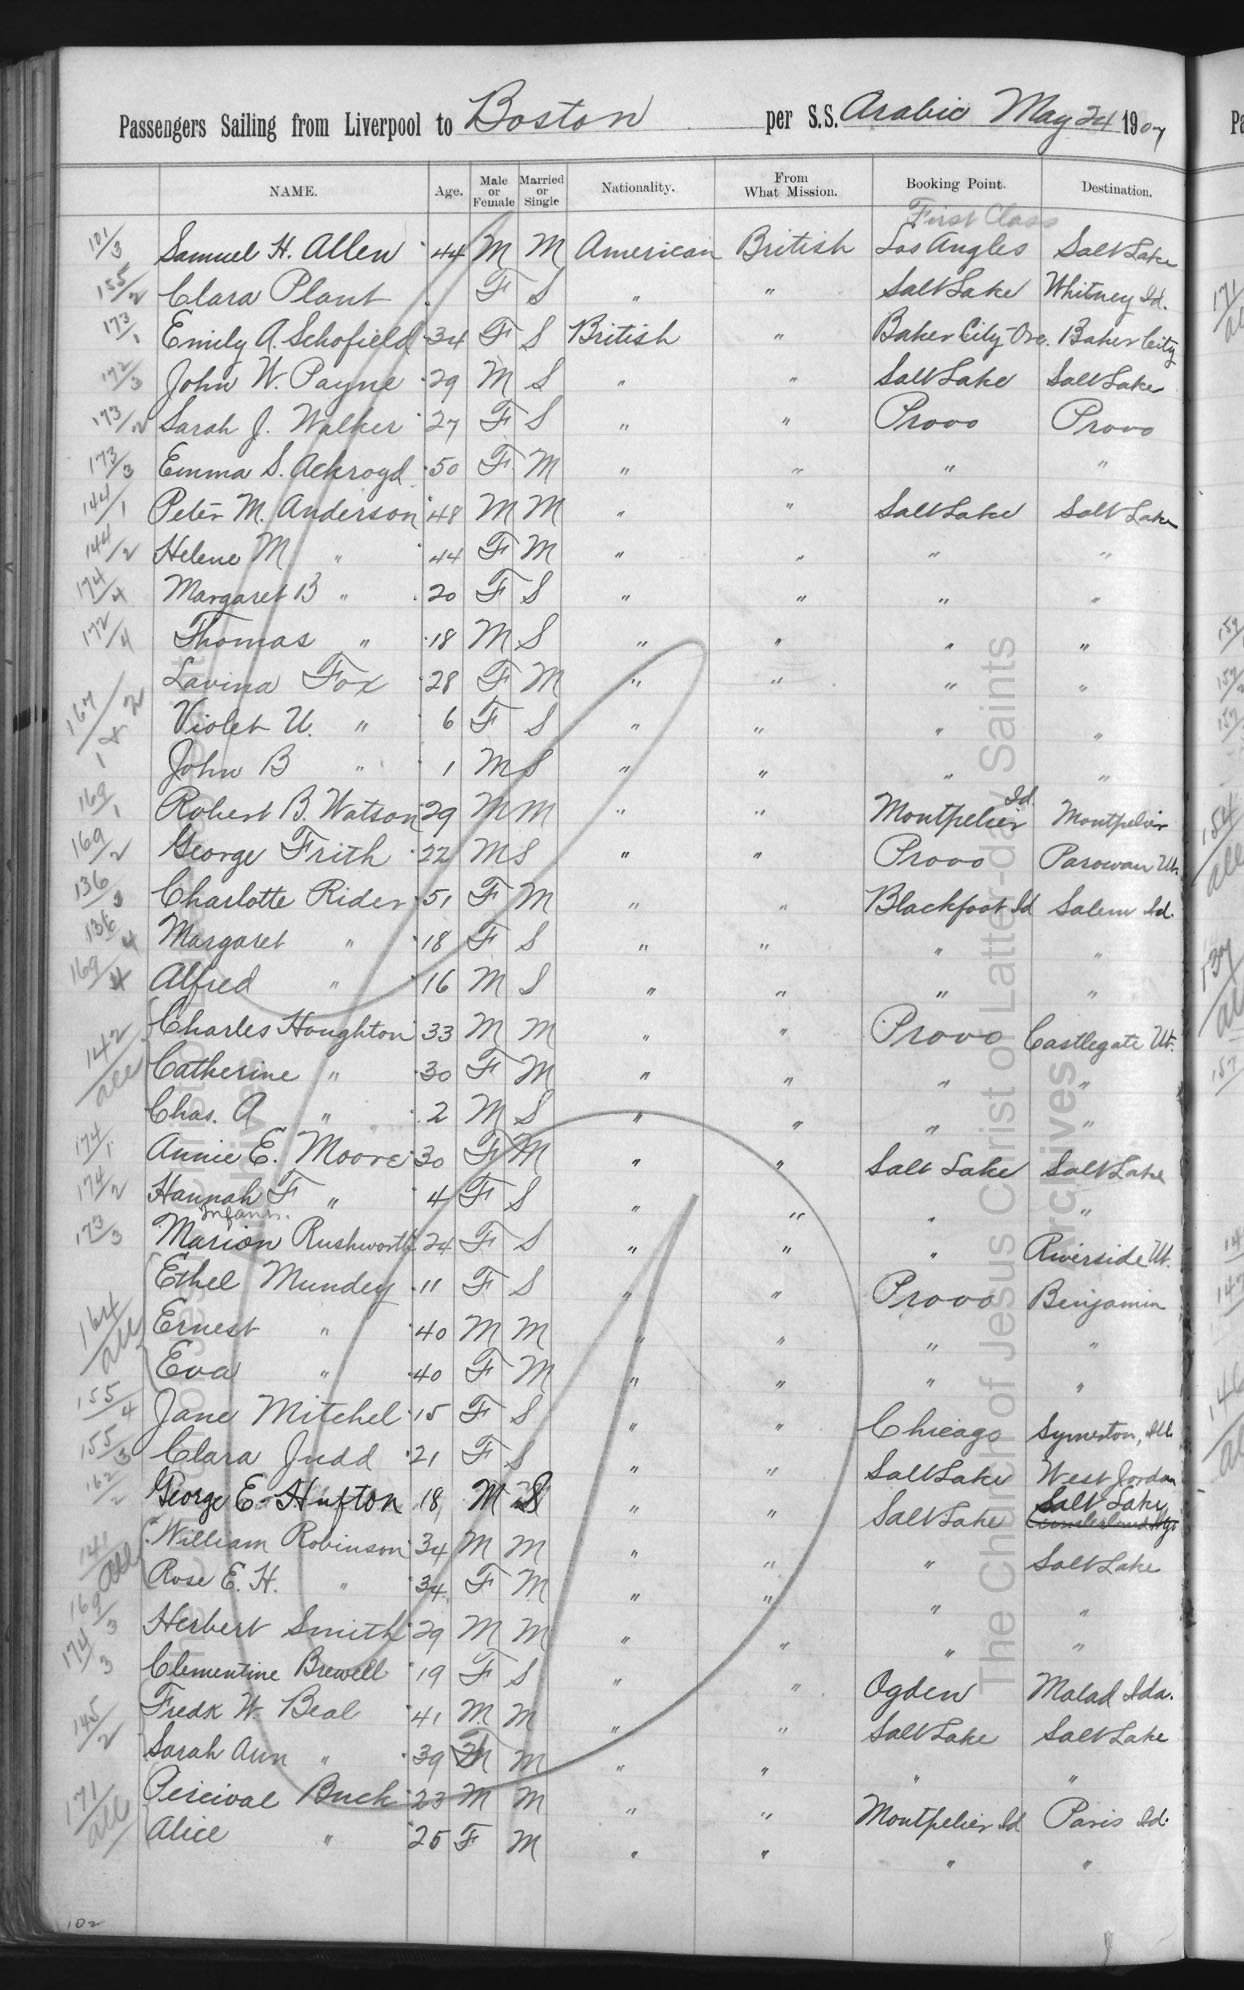 Passengers Sailing from Liverpool to Boston per S.S. Arabic May 24 1907
NAME. Age. Male or Female Married or Single Nationality. From What Mission. Booking Point. Destination.
First Class
101/3 Samuel H. Allen 44 M M American British Los Angles Salt Lake
155/2 Clara Plant F S " " Salt Lake Whitney Id.
173/1 Emily A. Schofield 34 F S British " Baker City Ore. Baker City
172/3 John W. Payne 29 M S " " Salt Lake Salt Lake
173/2 Sarah J. Walker 27 F S " " Provo Provo
173/3 Emma S. Ackroyd 50 F M " " " "
144/1 Peter M. Anderson 48 M M " " Salt Lake Salt Lake
144/2 Helene M " 44 F M " " " "
174/4 Margaret B " 20 F S " " " "
172/4 Thomas " 18 M S " " " "
Lavina Fox 28 F M " " " "
167/1 & 2 Violet U. " 6 F S " " " "
John B " 1 M S " " " "
169/1 Robert B. Watson 29 M M " " Montpelier Id. Montpelier
169/2 George Frith 22 M S " " Provo Parowan Ut.
136/3 Charlotte Rider 51 F M " " Blackfoot Id Salem Id.
136/4 Margaret " 18 F S " " " "
169/4 Alfred " 16 M S " " " "
Charles Houghton 33 M M " " Provo Castlegate Ut.
142/all Catherine " 30 F M " " " "
Chas. A " 2 M S " " " "
174/1 Annie E. Moore 30 F M " " Salt Lake Salt Lake
174/2 Hannah F " 4 F S " " " "
Infant.
173/3 Marion Rushworth 24 F S " " " Riverside Ut.
Ethel Mundey 11 F S " " Provo Benjamin
164/all Ernest " 40 M M " " " "
Eva " 40 F M " " " "
155/4 Jane Mitchel 15 F S " " Chicago Symerton, Ill.
155/3 Clara Judd 21 F S " " Salt Lake West Jordan
162/2 George E. Hufton 18 M S " " Salt Lake Salt Lake
141/all William Robinson 34 M M " " " Salt Lake
Rose E. H. " 34 F M " " " "
169/3 Herbert Smith 29 M M " " " "
174/3 Clementine Brewell 19 F S " " Ogden Malad Ida.
145/2 Fredk W. Beal 41 M M " " Salt Lake Salt Lake
Sarah Ann " 39 F M " " " "
171/all Percival Buck 23 M M " " Montpelier Id Paris Id.
Alice " 25 F M " " " "
102
The Church of Jesus Christ of Latter-day Saints
Archives